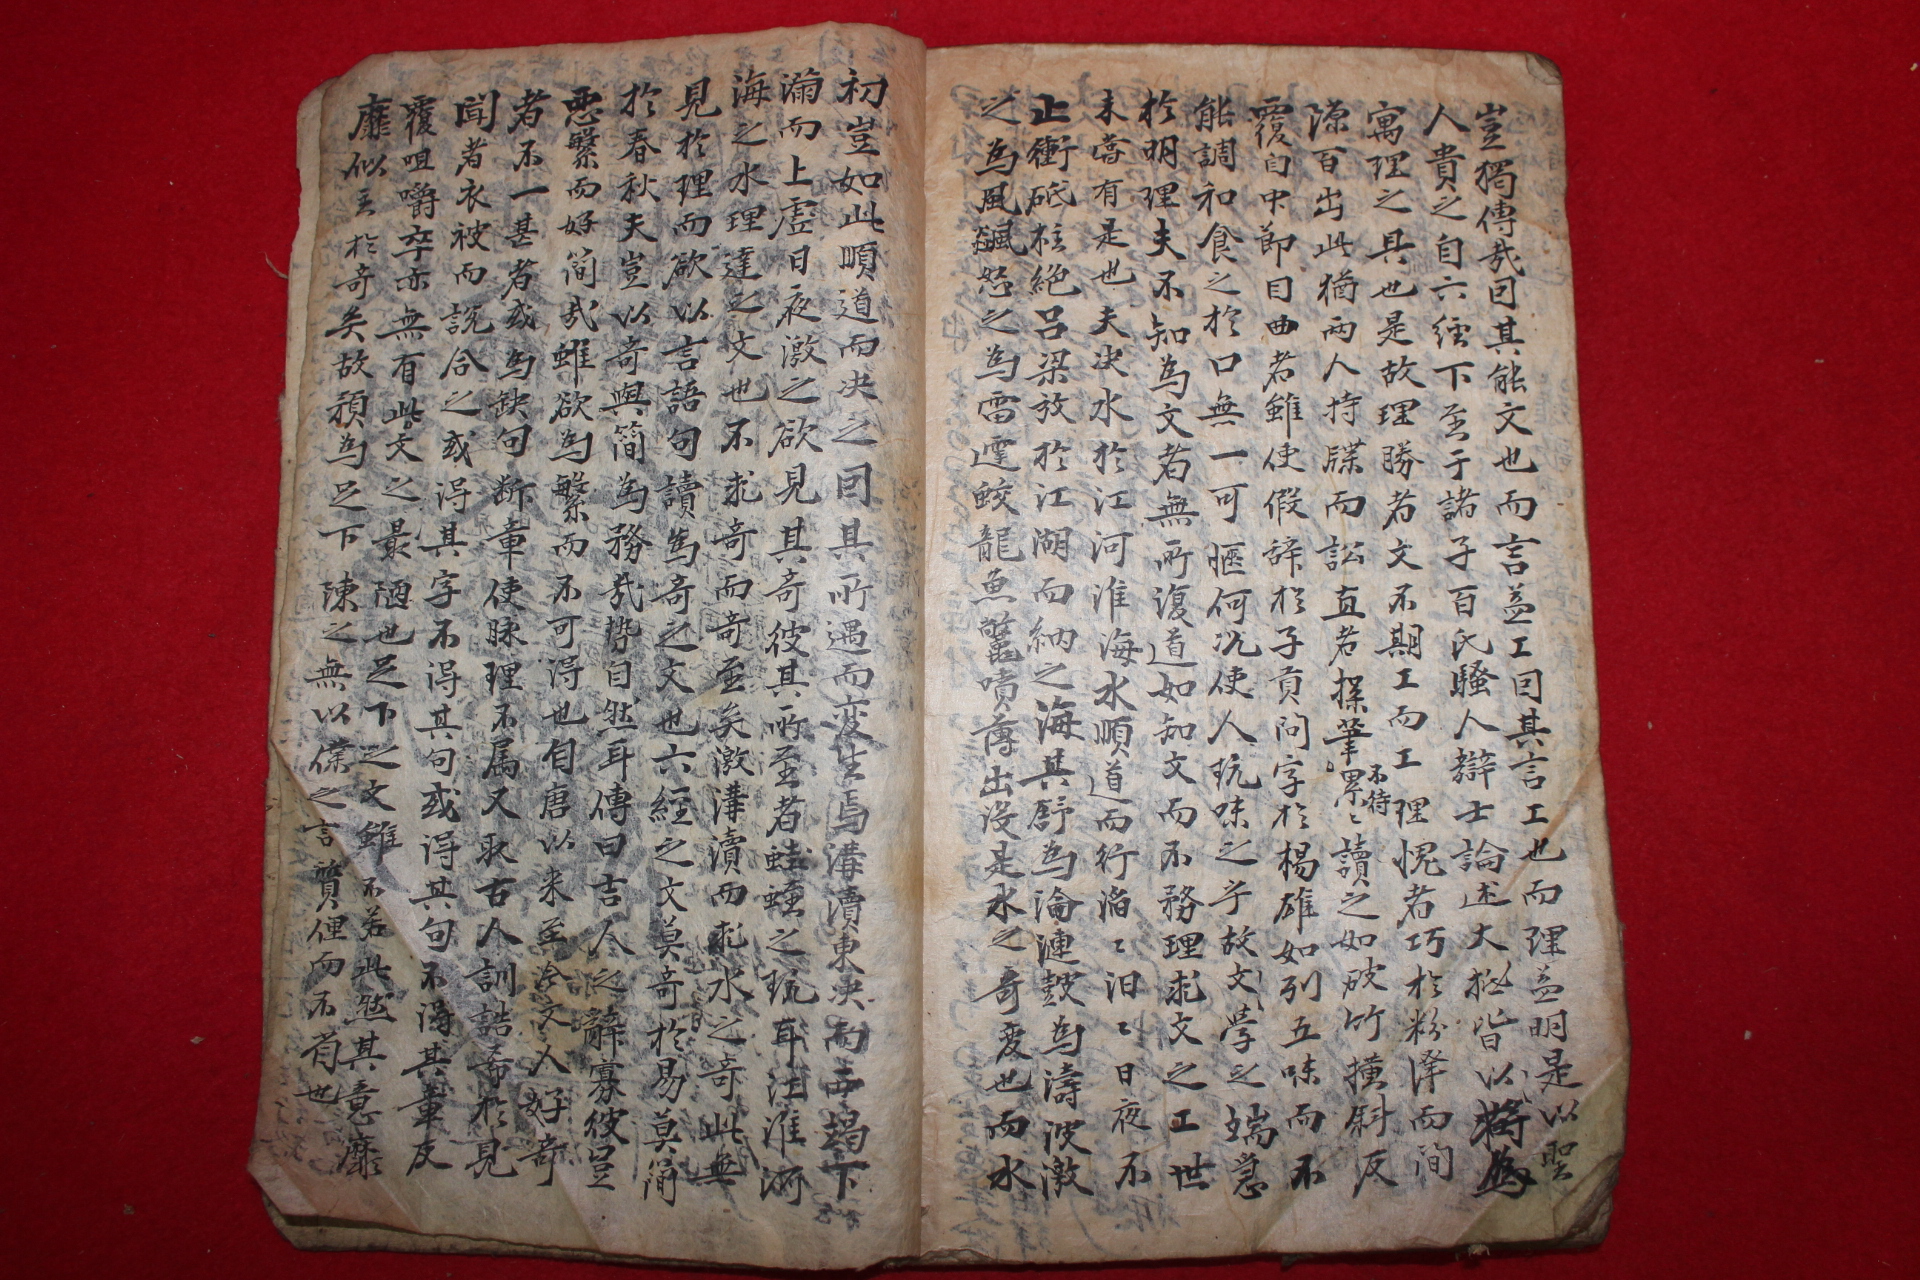 豈獨傳哉曰其能文也而言益工曰其言工也而理益明是以聖
人貴之自六經下至于諸子百氏騷人辯士論述大抵皆以將為
寓理之具也是故理勝者文不期工而工理愧者巧於粉澤而間
源百出此猶兩人持牒而訟直者操筆不待累〻讀之如破竹橫斜反
覆自中節目曲者雖使假辞於子貢問字於楊雄如列五味而不
能調和食之於口無一可愜何况使人玩味之乎故文學之端急
於明理夫不知為文者無所復道如知文而不務理求文之工世
未甞有是也夫决水於江河淮海水順道而行滔〻汩〻日夜不
止衝砥柱絕呂梁放於江湖而納之海其舒為淪漣鼓為濤波激
之為風飆怒之為雷霆蛟龍魚鼈噴薄出沒是水之奇変也而水
初豈如此順道而决之曰其所遇而変生焉溝瀆東决而西竭下
滿而上虛日夜激之欲見其奇彼其所至者蛙蛭之玩耳江淮河
海之水理達之文也不求奇而奇至矣激溝瀆而求水之奇此無
見於理而欲以言語句讀為奇之文也六經之文莫奇於易莫簡
於春秋夫豈以奇與簡為務哉势自然耳傳曰吉人之辭寡彼豈
惡繁而好简哉雖欲為繁而不可得也自唐以来至今文人好奇
者不一甚者或為缺句断章使脉理不属又取古人訓誥希於見
聞者衣被而說合之或得其字不得其句或得其句不得其章反
覆咀嚼卒亦無有此文之最陋也足下之文雖不若此然其意靡
靡似主於奇矣故預為足下陳之無以僕之言質俚而不省也